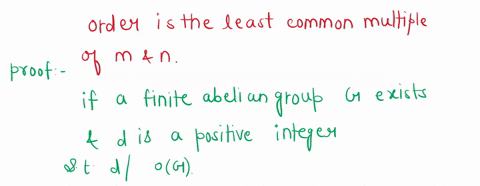 order is the least common multiple
of m & n.
proof:-
if a finite abelian group G exists
& d is a positive integer
s.t. d/ o(G)